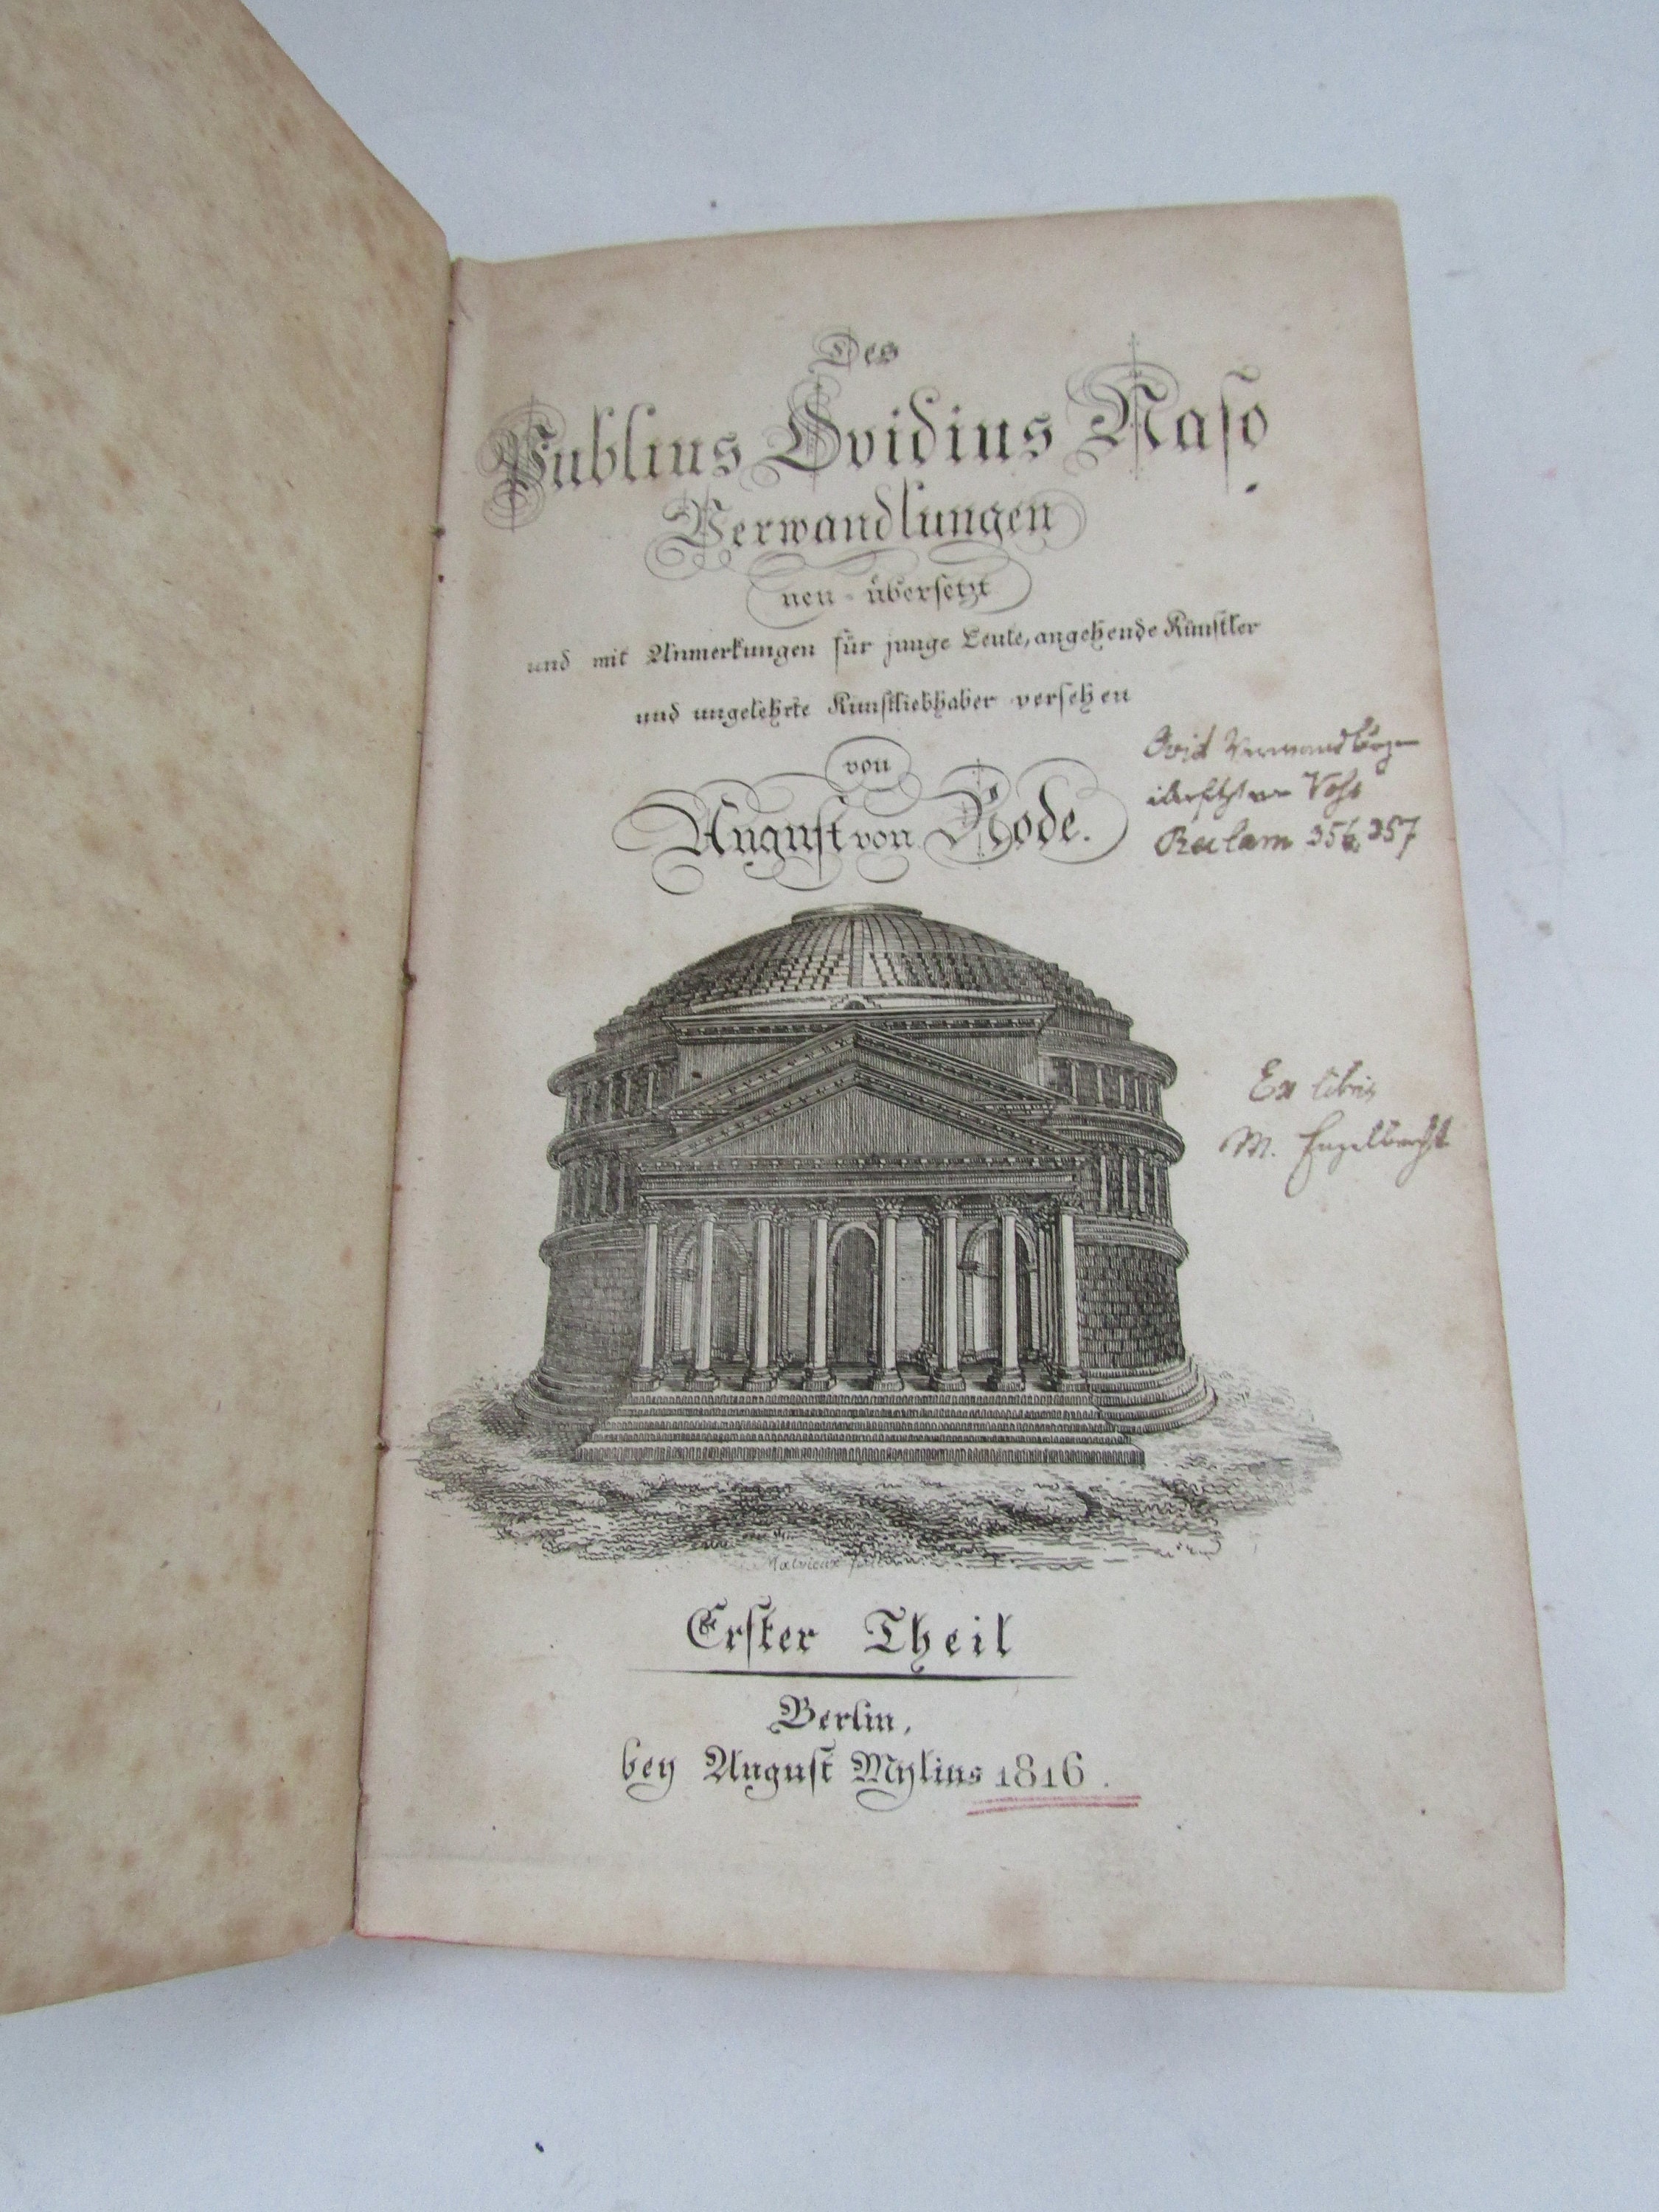 Des
Publius Ovidius Naso
Verwandlungen
neu-übersetzt
und mit Anmerkungen für junge Leute, angehende Künstler
und ungelehrte Kunstliebhaber versehen
von
August von Rode.
Ovid Verwandlungen
übersetzt von Voß
Reclam 356, 357
Ex libris
M. Engelbrecht
Malvieux fec
Erster Theil
Berlin,
bey August Mylius 1816.